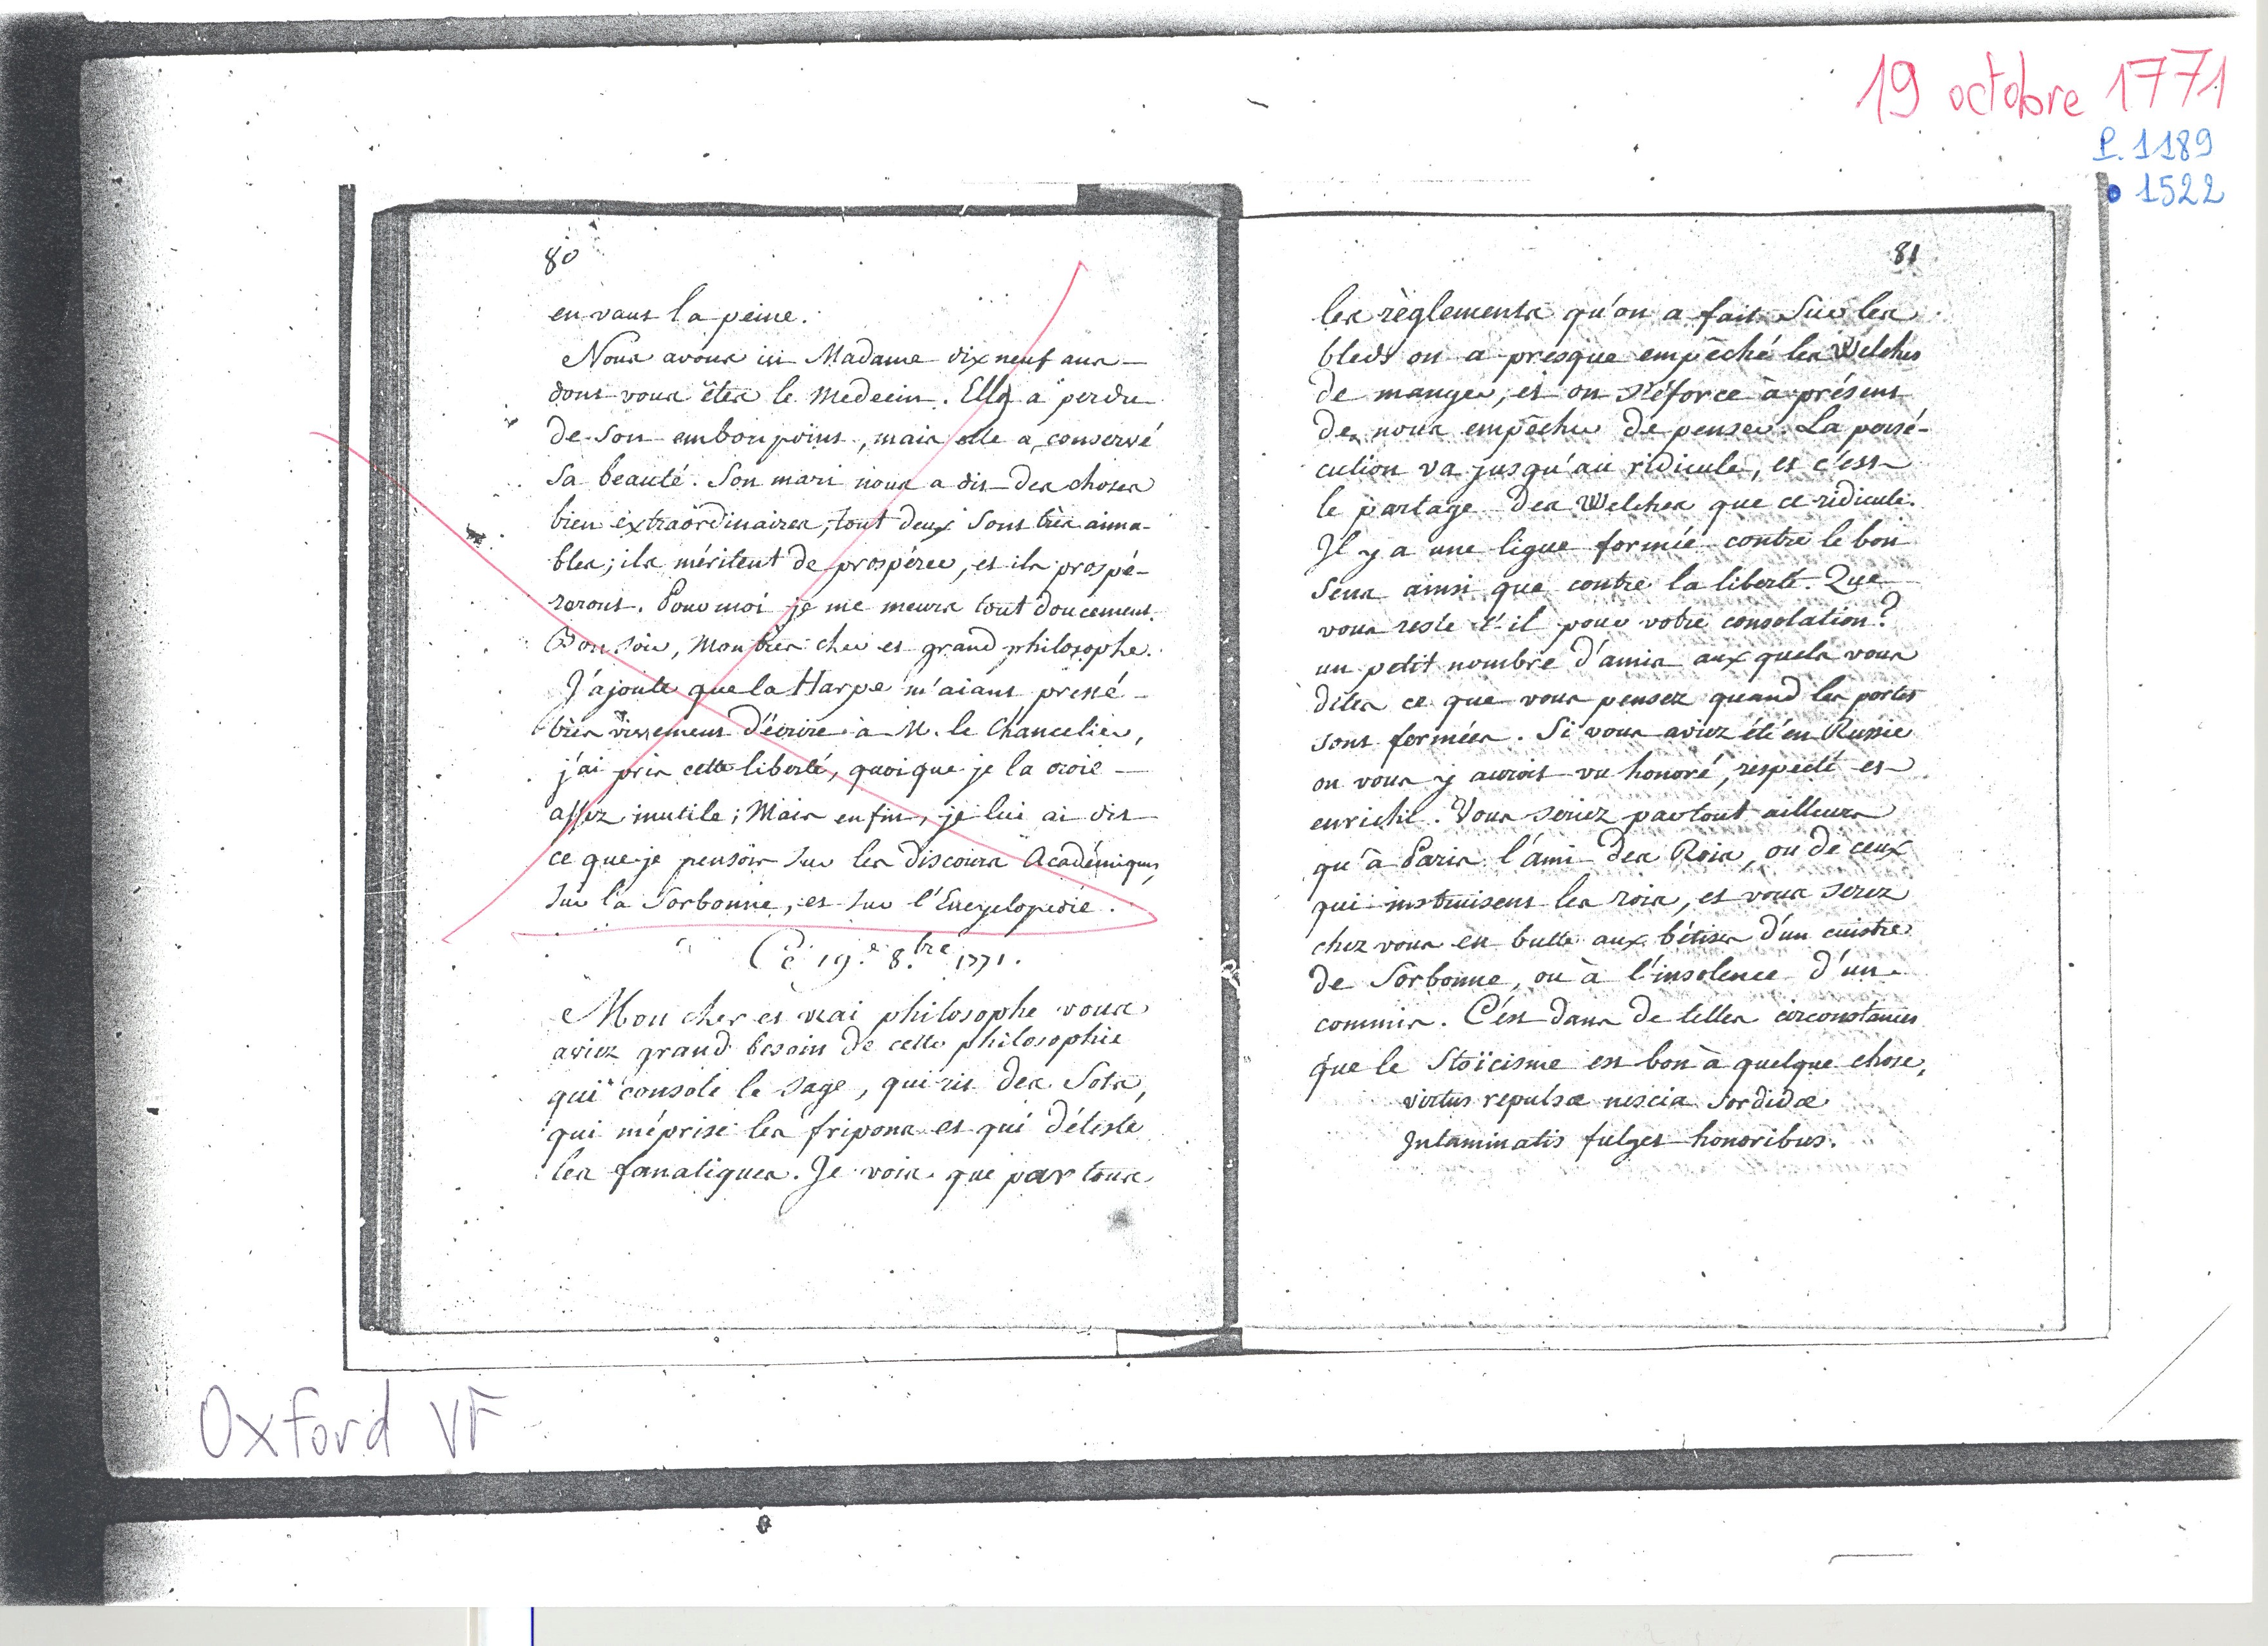 19 octobre 1771
P. 1189
1522
80
en vaut la peine.
Nous avons ici Madame dixneuf ans
dont vous êtes le Medecin. Elle a perdu
de son embonpoint, mais elle a conservé
sa beauté. Son mari nous a dit des choses
bien extraordinaires, tout deux sont très aima-
bles; ils méritent de prospérer, et ils prospé-
reront. Pour moi je me meurs tout doucement.
Bon soir, mon très cher et grand philosophe.
J'ajoute que la Harpe m'aiant pressé
très vivement d'écrire à M. le Chancelier,
j'ai pris cette liberté, quoique je la croie
assez inutile; Mais enfin, je lui ai dit
ce que je pensois sur les discours Académiques,
sur la Sorbonne, et sur l'Encyclopédie.
Ce 19.e 8.bre 1771.
Mon cher et vrai philosophe vous
aviez grand besoin de cette philosophie
qui console le sage, qui rit des Sots,
qui méprise les fripons et qui déteste
les fanatiques. Je vois que par tous
81
les règlements qu'on a fait sur les
bleds on a presque empêché les Welches
de manger, et on s'éforce à présent
de nous empêcher de penser. La persé-
cution va jusqu'au ridicule, et c'est
le partage des Welches que ce ridicule.
Il y a une ligue formée contre le bon
sens ainsi que contre la liberté. Que
vous reste t'il pour votre consolation?
un petit nombre d'amis aux quels vous
dites ce que vous pensez quand les portes
sont fermées. Si vous aviez été en Russie
on vous y auroit vu honoré, respecté et
enrichi. Vous seriez partout ailleurs
qu'à Paris l'ami des Rois, ou de ceux
qui instruisent les rois, et vous serez
chez vous en butte aux bêtises d'un cuistre
de Sorbonne, ou à l'insolence d'un
commis. C'est dans de telles circonstances
que le Stoïcisme est bon à quelque chose,
virtus repulsæ nescia sordidæ
Intaminatis fulget honoribus.
Oxford VF